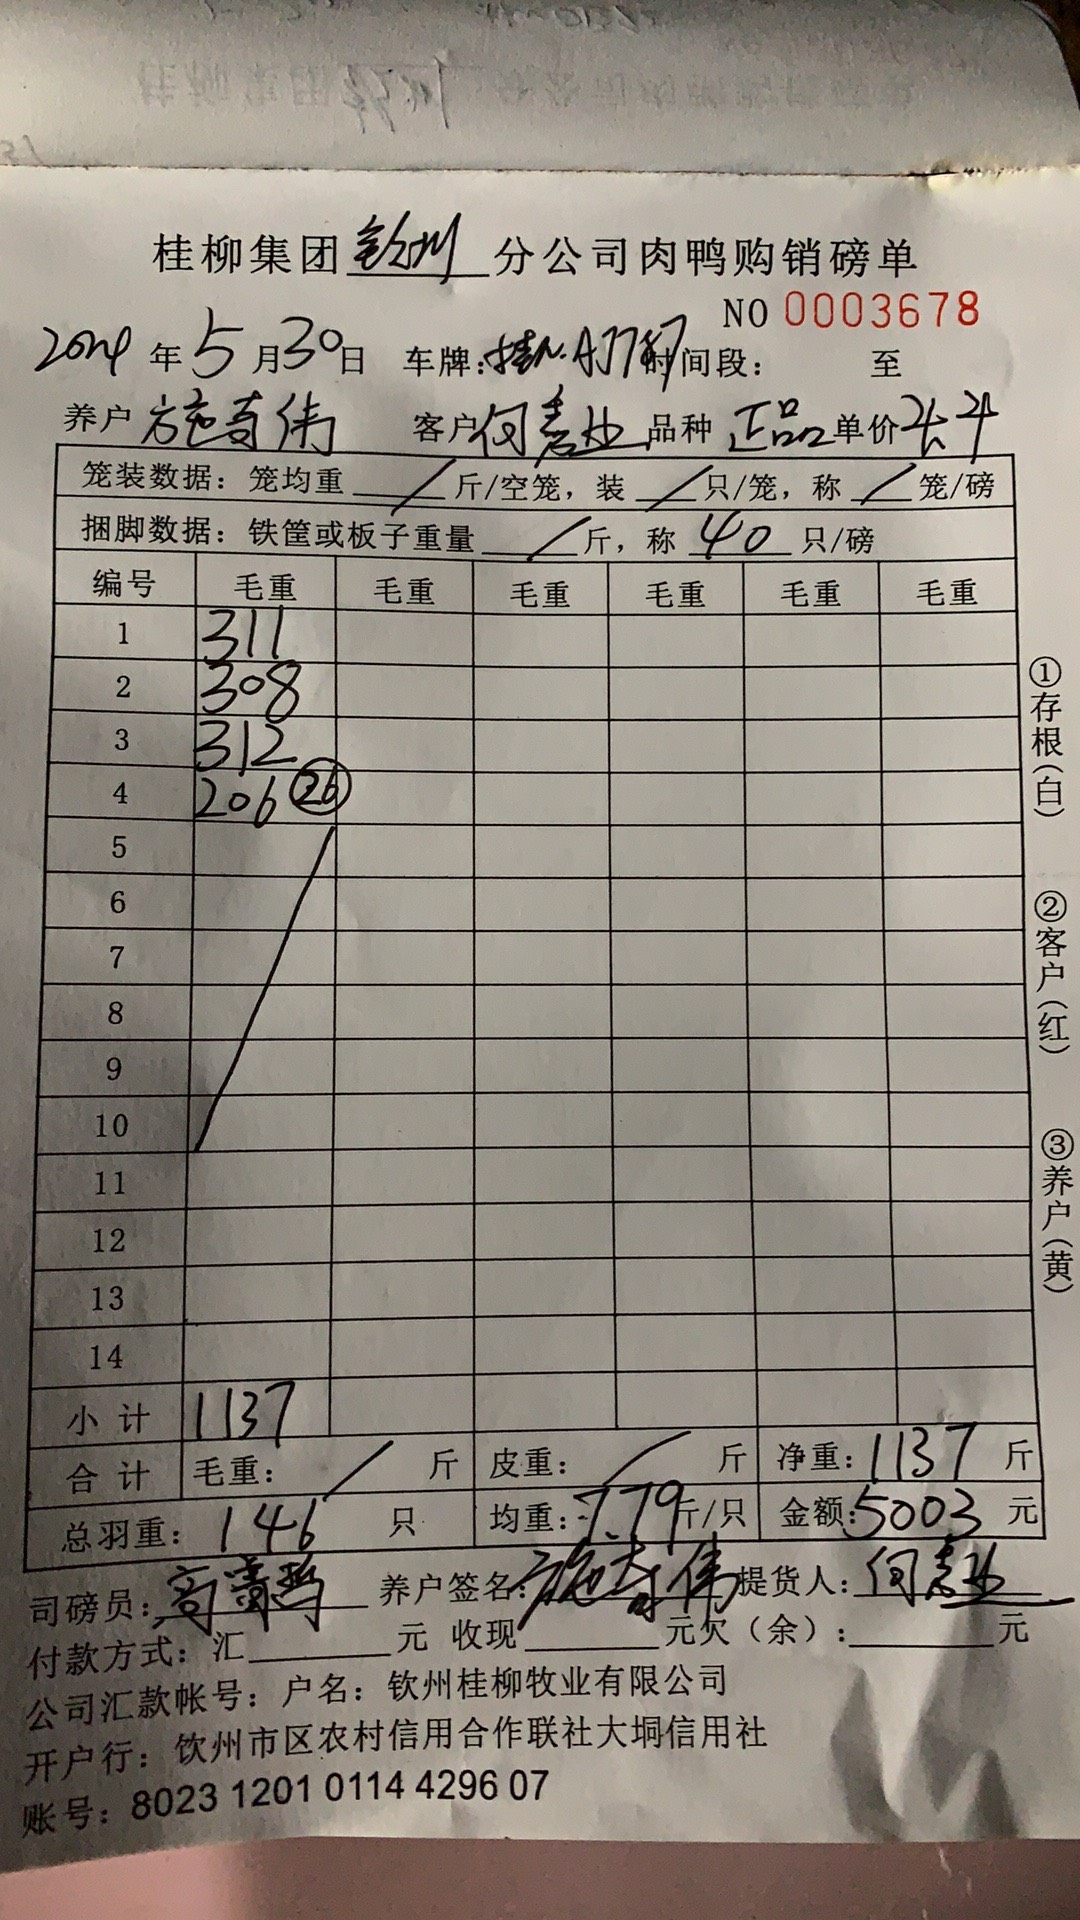 桂柳集团 钦州 分公司肉鸭购销磅单
NO 0003678
2024 年 5 月 30 日 车牌: 时间段: 至
养户 施奇伟 客户 何 品种 正品 单价 4.4
笼装数据: 笼均重 / 斤/空笼, 装 / 只/笼, 称 / 笼/磅
捆脚数据: 铁筐或板子重量 / 斤, 称 40 只/磅
编号 毛重 毛重 毛重 毛重 毛重 毛重
1 311
2 308
3 312
4 206 26
5
6
7
8
9
10
11
12
13
14
小计 1137
合计 毛重: / 斤 皮重: / 斤 净重: 1137 斤
总羽重: 146 只 均重: 7.79 斤/只 金额: 5003 元
司磅员: 养户签名: 施奇伟 提货人: 何
付款方式: 汇 元 收现 元欠(余): 元
公司汇款帐号: 户名: 钦州桂柳牧业有限公司
开户行: 钦州市区农村信用合作联社大垌信用社
账号: 8023 1201 0114 4296 07
①存根(白)
②客户(红)
③养户(黄)